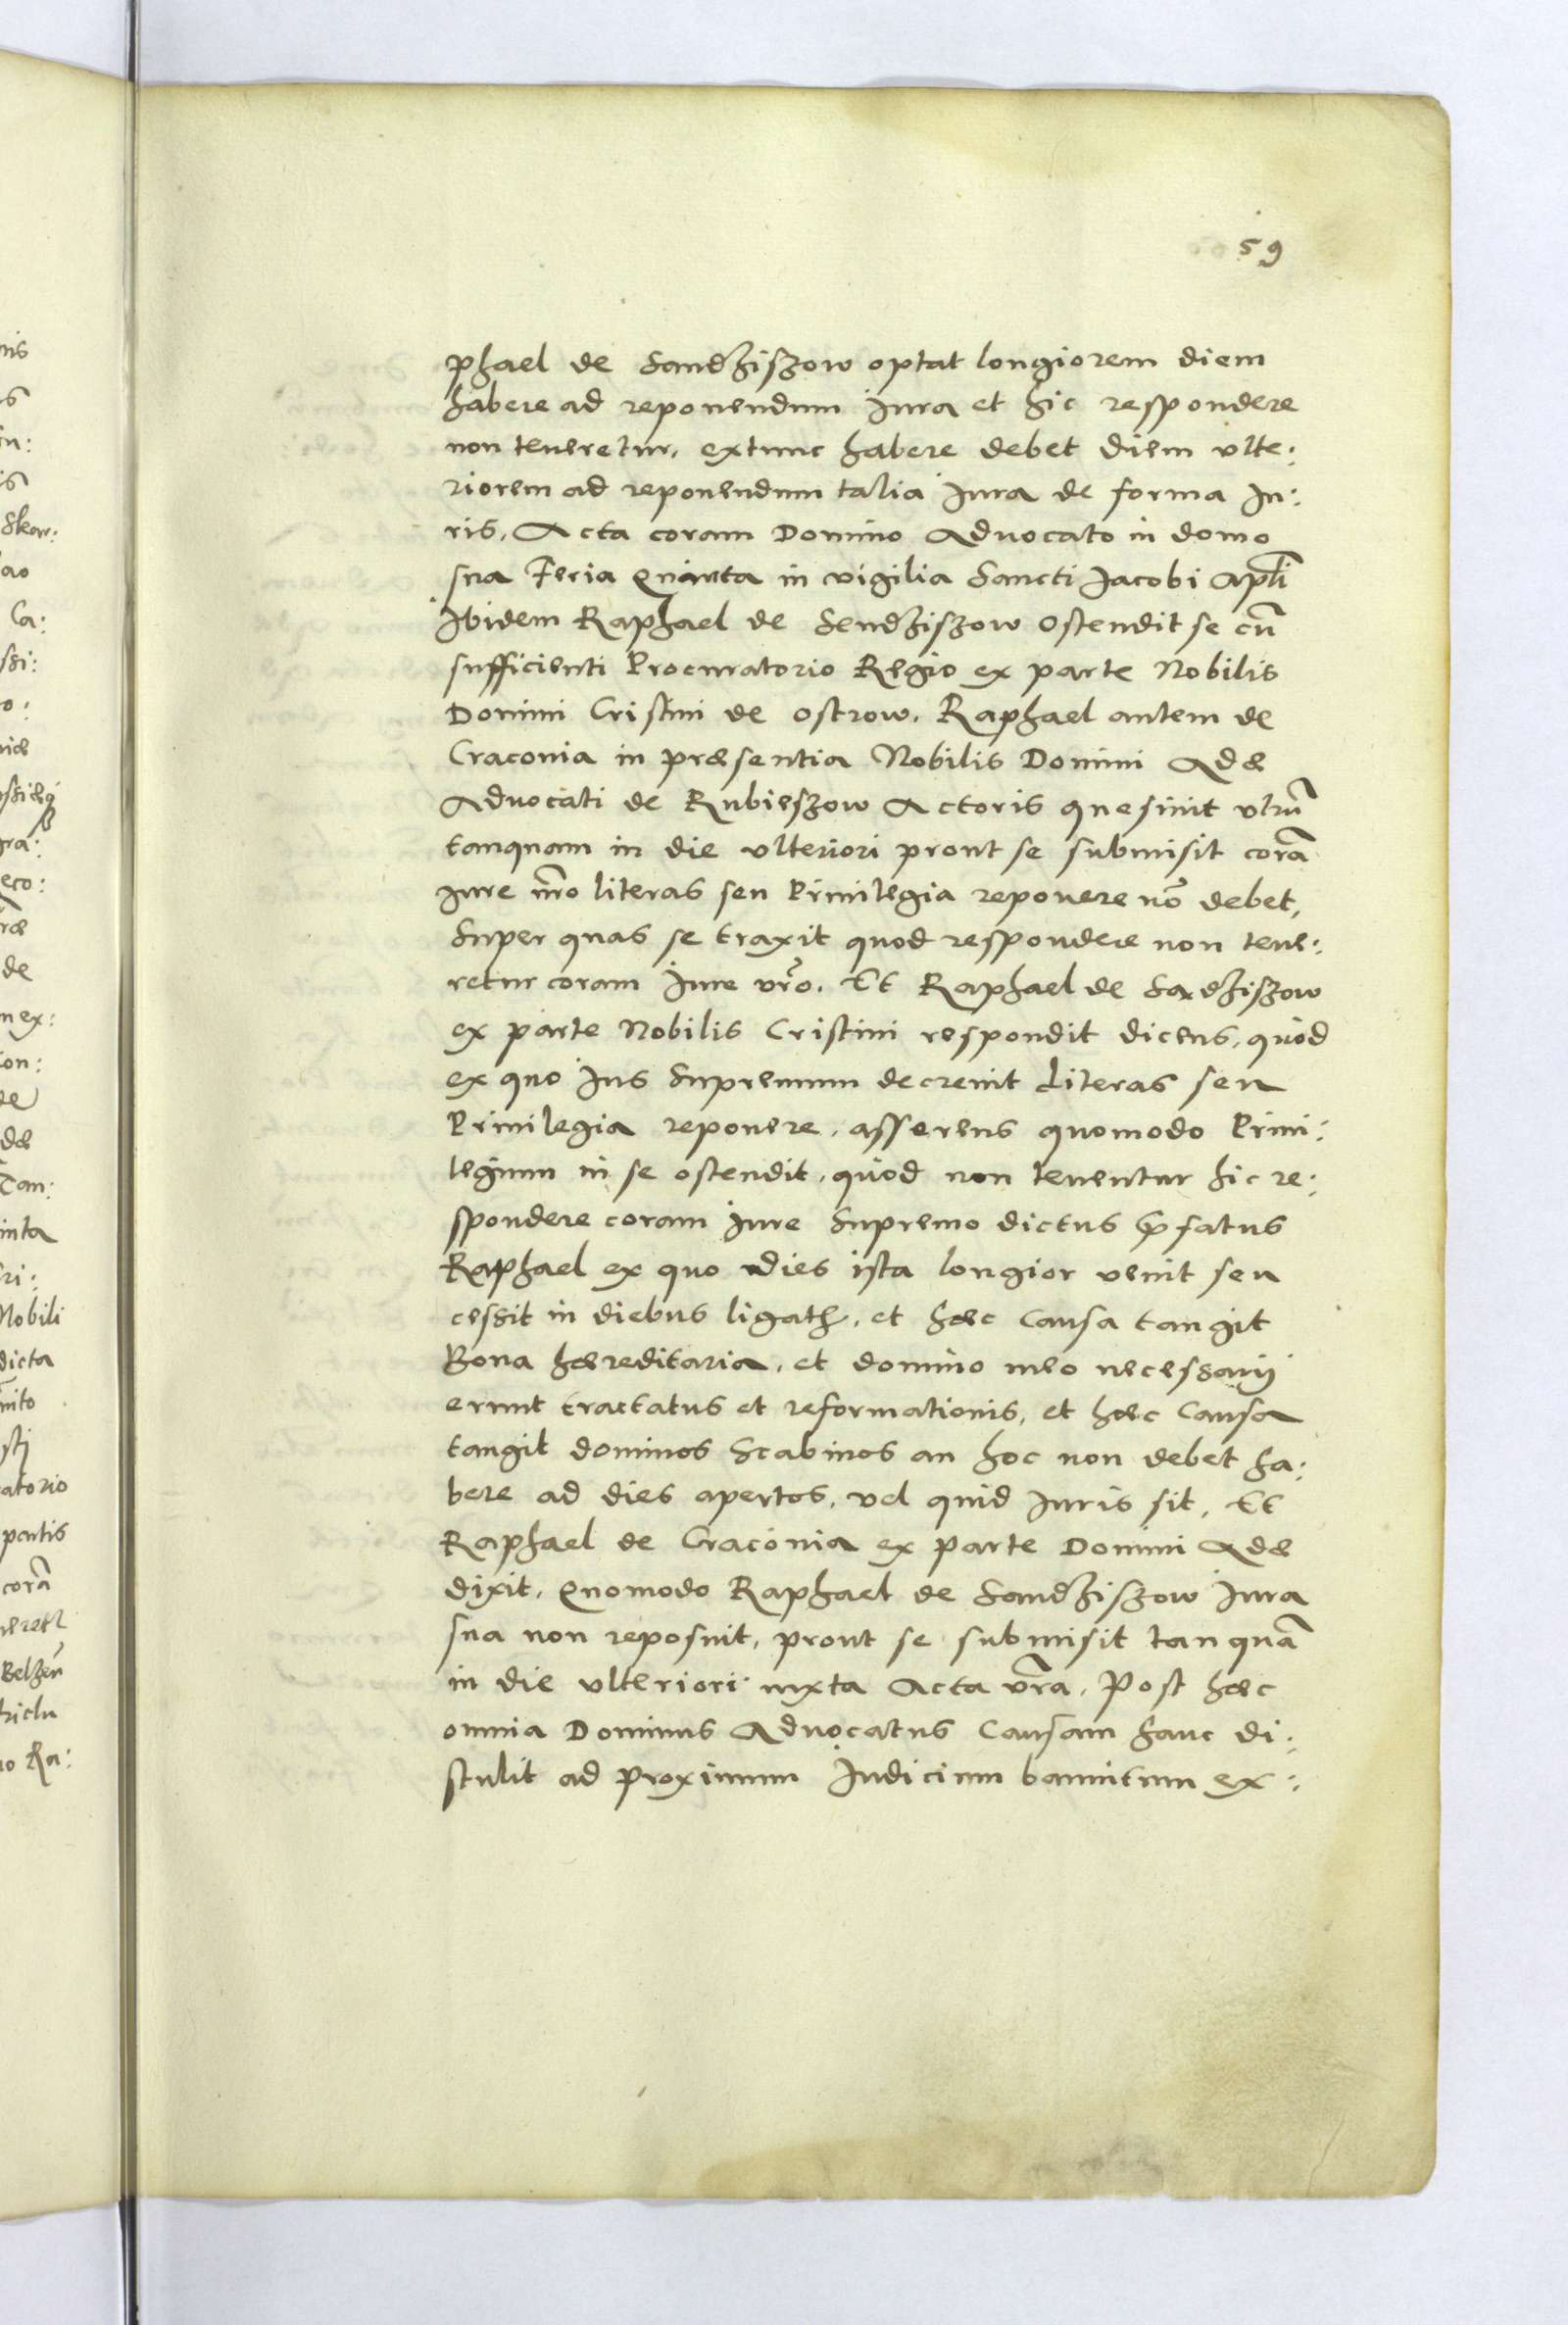 59
phael de Sandziszow optat longiorem diem
habere ad reponendum Jura et hic respondere
non teneretur, extunc habere debet diem vlte:
riorem ad reponendum talia Jura de forma Ju:
ris, Acta coram Domino Aduocato in domo
sua Feria Quinta in vigilia Sancti Jacobi Apl̃i
Ibidem Raphael de Sendziszow Ostendit se cũ
sufficienti Procuratorio Regio ex parte Nobilis
Domini Cristini de Ostrow, Raphael autem de
Craconia in præsentia Nobilis Domini Adæ
Aduocati de Rubieszow Actoris quesiuit vtrũ
tanquam in die vlteriori prout se submisit corã
Jure nr̃o literas seu Priuilegia reponere nõ debet,
Super quas se traxit quod respondere non tene:
retur coram Jure vr̃o. Et Raphael de Sandziszow
ex parte Nobilis Cristini respondit dicens, quod
ex quo Jus Supremum decreuit Literas seu
Priuilegia reponere, asserens quomodo Priui:
legium in se ostendit, quod non tenentur hic re:
spondere coram Jure Supremo dictus p̃fatus
Raphael ex quo dies ista longior venit seu
cessit in diebus ligatꝫ, et hæc Causa tangit
Bona hæreditaria, et domino meo necessarij
erunt tractatus et reformationis, et hæc Causa
tangit dominos Scabinos an hoc non debet ha:
bere ad dies apertos, vel quid Juris sit, Et
Raphael de Craconia ex parte Domini Adæ
dixit, Quomodo Raphael de Sandziszow Jura
sua non reposuit, prout se submisit tanquã
in die vlteriori iuxta Acta vr̃a, Post hæc
omnia Dominus Aduocatus Causam hanc di:
stulit ad proximum Judicium bannitum ex: